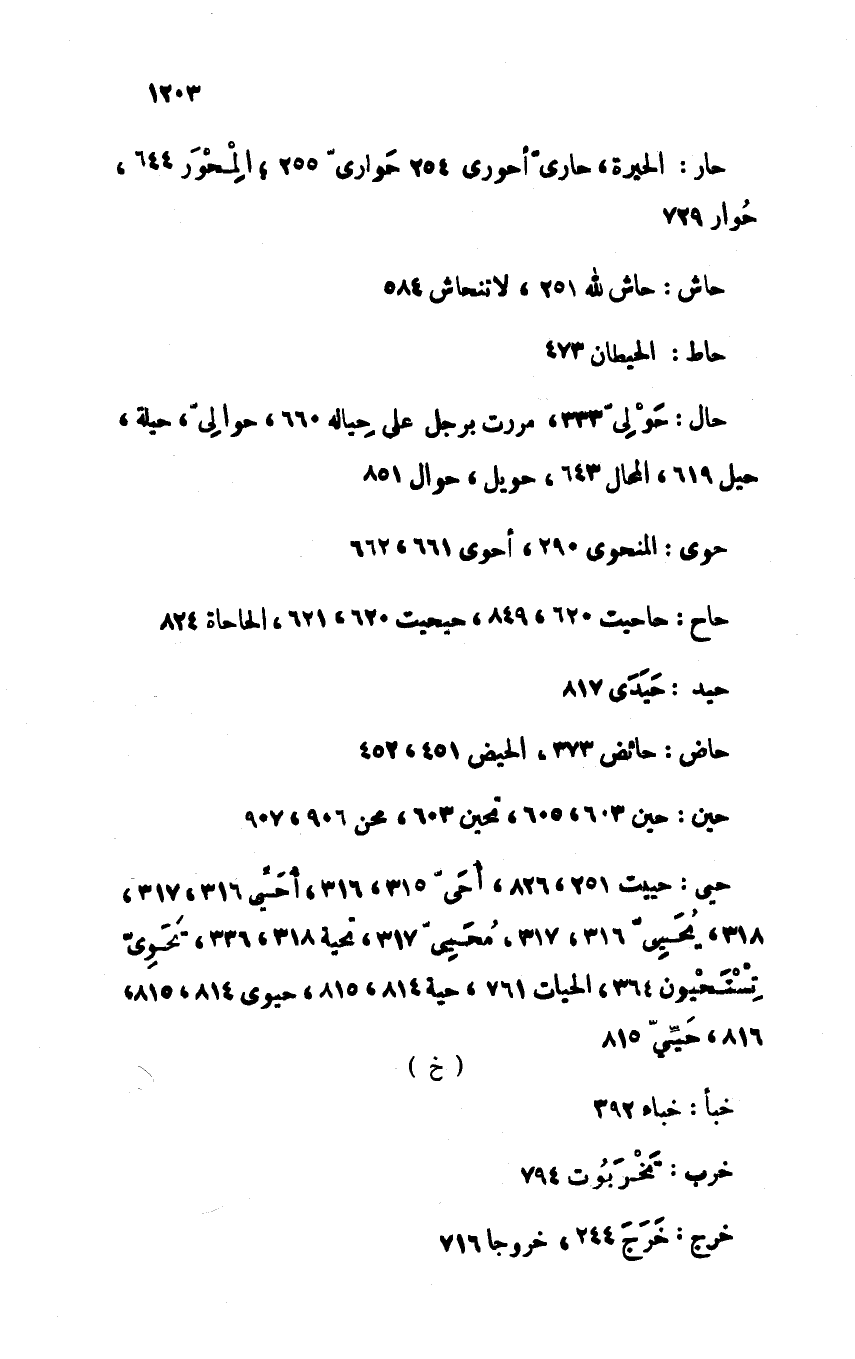 ١٢٠٣
حار : الحيرة، حارىّ أحورى ٢٥٤ حَوارىّ ٢٥٥ ، المِْحْوَر ٦٤٤ ،
حُوار ٧٢٩
حاش : حاش لله ٢٥١ ، لاتنحاش ٥٨٤
حاط : الحيطان ٤٧٣
حال : حَوْلِىّ ٣٣٣، مررت برجل على حِياله ٦٦٠ ، حوالِىّ ، حيلة ،
حيل ٦١٩ ، المحال ٦٤٣ ، حويل ، حوال ٨٥١
حوى : المنحوى ٢٩٠ ، أحوى ٦٦١ ، ٦٦٢
حاح : حاحيت ٦٢٠ ، ٨٤٩ ، حيحيت ٦٢٠ ، ٦٢١ ، الحاحاة ٨٢٤
حيد : حَيَدَى ٨١٧
حاض : حائض ٣٧٣ ، الحيض ٤٥١ ، ٤٥٢
حين : حين ٦٠٣ ، ٦٠٥ ، تحين ٦٠٣ ، محن ٩٠٦ ، ٩٠٧
حيى : حييت ٢٥١ ، ٨٢٦ ، أُحَىّ ٣١٥ ، ٣١٦ ، أُحَيِّي ٣١٦ ، ٣١٧ ،
٣١٨ ، يُحَيِيّ ٣١٦ ، ٣١٧ ، مُحَيِيّ ٣١٧ ، تحية ٣١٨ ، ٣٣٦ ، تَحَوِىّ
تِسْتَحْيُون ٣٦٤ ، الحيات ٧٦١ ، حية ٨١٤ ، ٨١٥ ، حيوى ٨١٤ ، ٨١٥ ،
٨١٦ ، حَيِّيّ ٨١٥
( خ )
خبأ : خباء ٣٩٢
خرب : تَخْرَبُوت ٧٩٤
خرج : خَرَجَ ٢٤٤ ، خروجا ٧١٦